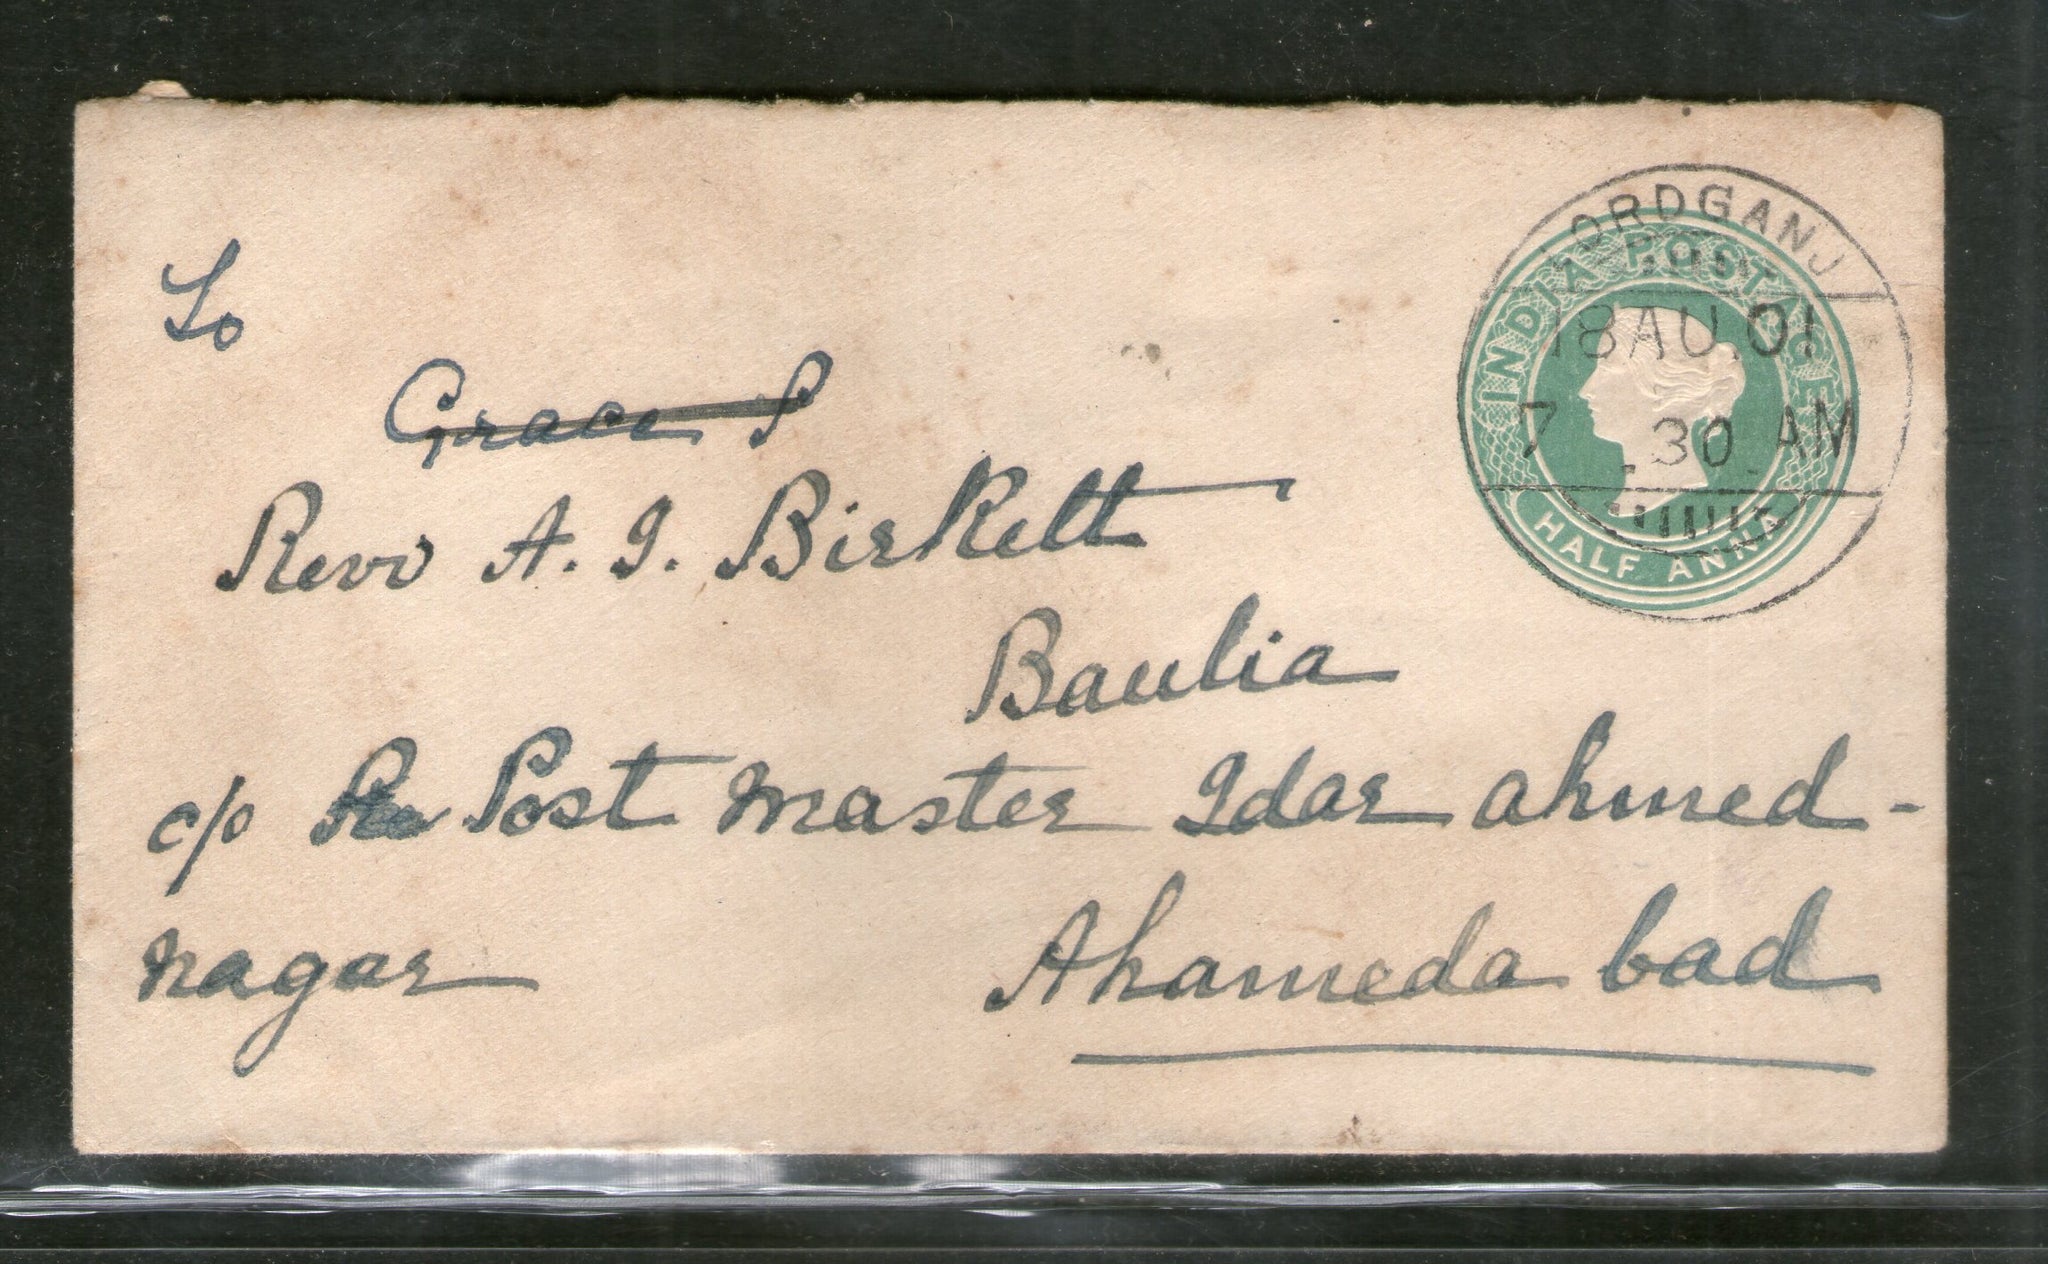 ORDGANJ
INDIA POSTAGE
18 AU. 01
7 . 30 AM
HALF ANNA
To
Grace S
Revd A. I. Birkett
Baulia
c/o Post Master Idar Ahmed-
nagar
Ahameda bad